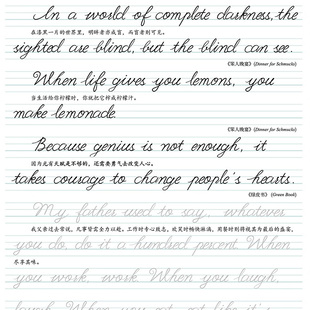 In a world of complete darkness, the
在漆黑一片的世界里，明眸者亦成盲，而盲者则可见。
sighted are blind, but the blind can see.
《笨人晚宴》(Dinner for Schmucks)
When life gives you lemons, you
当生活给你柠檬时，你就把它榨成柠檬汁。
make lemonade.
《笨人晚宴》(Dinner for Schmucks)
Because genius is not enough, it
因为光有天赋是不够的，还需要勇气去改变人心。
takes courage to change people's hearts.
《绿皮书》(Green Book)
My father used to say, whatever
我父亲过去常说，凡事皆需全力以赴。工作时专心致志，欢笑时畅快淋漓，用餐时则将视其为最后的盛宴，
you do, do it a hundred percent. When
尽享其味。
you work, work. When you laugh,
laugh. When you eat, eat like it's